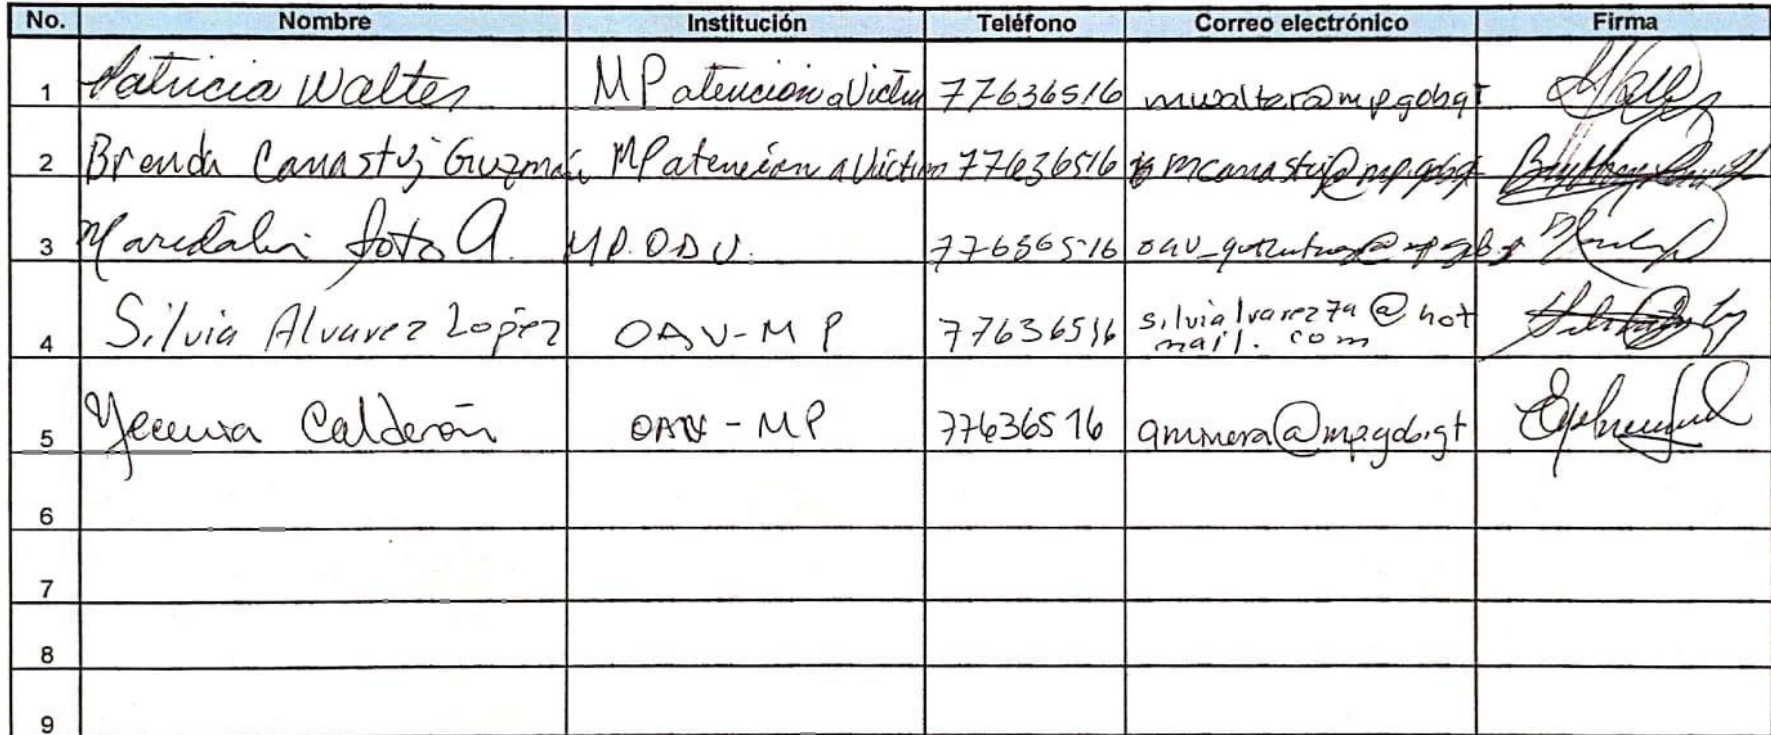 No. Nombre Institución Teléfono Correo electrónico Firma
1 Patricia Walter MP atención a Victim 77636516 mwalter@mp.gob.gt
2 Brenda Canastuj Guzmán MP atención a Victim 77636516 mcanastuj@mp.gob.gt
3 Soto A. 77636516
4 Silvia Alvarez Lopez OAV-MP 77636516 silvialvarez74@hot
mail.com
5 Calderón OAV-MP 77636516
6
7
8
9